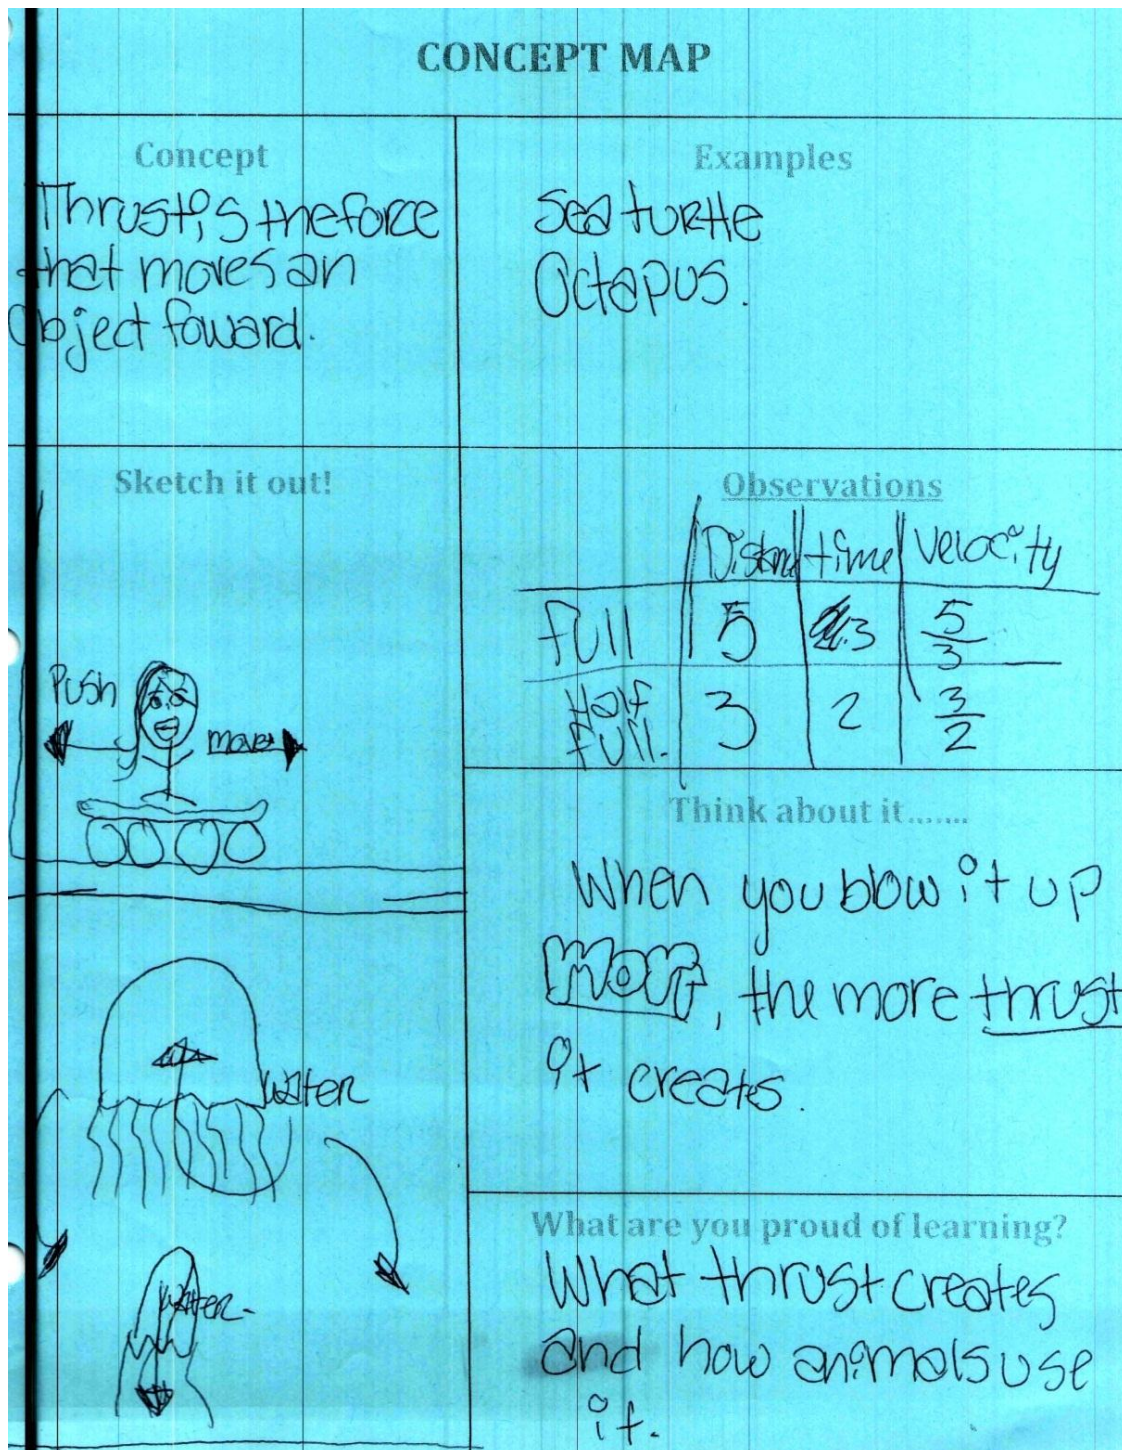 CONCEPT MAP
Concept
Thrust is the force
that moves an
object foward.
Examples
Sea turtle
Octapus.
Sketch it out!
Push
move
water
water
Observations
time velocity
full 5 3 5/3
Half
full. 3 2 3/2
Think about it.......
When you blow it up
more, the more thrust
it creates.
What are you proud of learning?
What thrust creates
and how animals use
it.